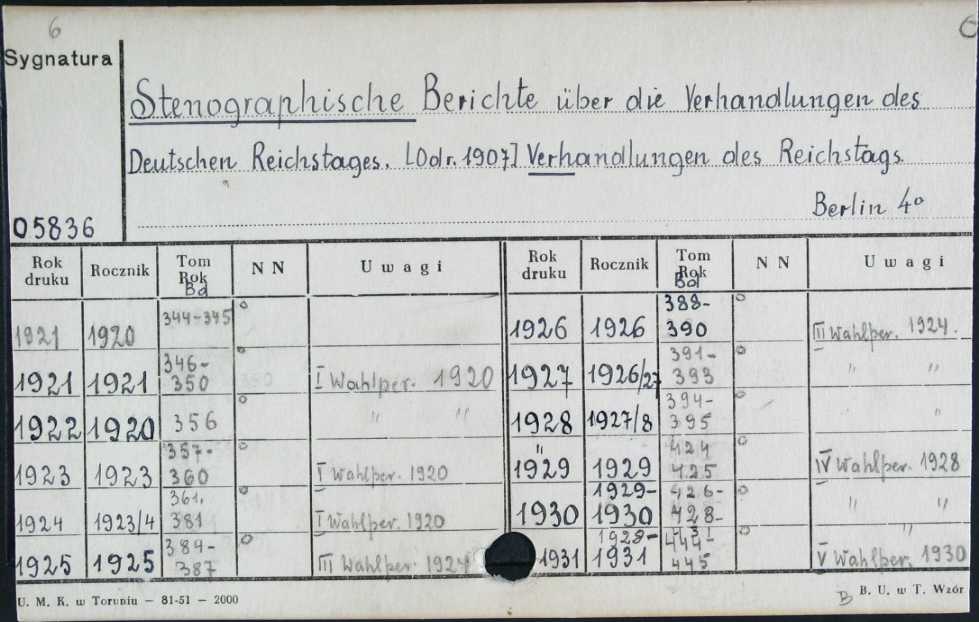 6
Sygnatura
Stenographische Berichte über die Verhandlungen des
Deutschen Reichstages. [Odr. 1907] Verhandlungen des Reichstags
Berlin 4°
05836
Rok druku Rocznik Tom Rok Bd N N Uwagi
1921 1920 344-345
1921 1921 346-350 I Wahlper. 1920
1922 1920 356 " "
1923 1923 357-360 I Wahlper. 1920
1924 1923/4 361, 381 I Wahlper. 1920
1925 1925 384-387 III Wahlper. 1924
Rok druku Rocznik Tom Rok Bd N N Uwagi
1926 1926 388-390 III Wahlper. 1924.
1927 1926/27 391-393 " "
1928 1927/8 394-395 " "
" 1929 1929 424 425 IV Wahlper. 1928
1930 1929-1930 426-428- " "
1931 1928-1931 444-445 " V Wahlper. 1930
U. M. K. w Toruniu – 81-51 – 2000
B B. U. w T. Wzór